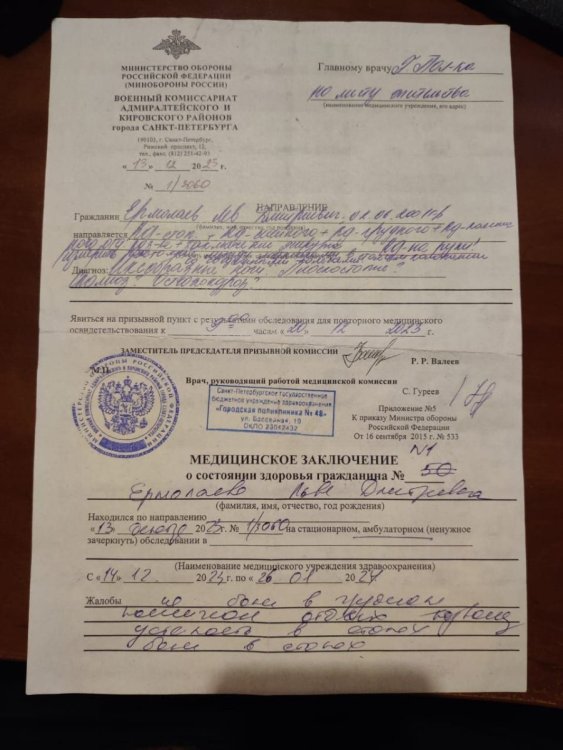 МИНИСТЕРСТВО ОБОРОНЫ
РОССИЙСКОЙ ФЕДЕРАЦИИ
(МИНОБОРОНЫ РОССИИ)
ВОЕННЫЙ КОМИССАРИАТ
АДМИРАЛТЕЙСКОГО И
КИРОВСКОГО РАЙОНОВ
города САНКТ-ПЕТЕРБУРГА
Рижский проспект, 12,
тел., факс. (812) 251-42-91
«13» 12 2023 г.
№ 1/3060
Главному врачу
по месту
(наименование медицинского учреждения, его адрес)
НАПРАВЛЕНИЕ
Гражданин Ермолаев Лев Дмитриевич
(фамилия, имя, отчество, год рождения)
направляется
на руки!
Диагноз: "Плоскостопие"
Сколиоз "Остеохондроз"
Явиться на призывной пункт с результатами обследования для повторного медицинского
освидетельствования к 9:00 часам «20» 12 2023 г.
ЗАМЕСТИТЕЛЬ ПРЕДСЕДАТЕЛЯ ПРИЗЫВНОЙ КОМИССИИ Р. Р. Валеев
М.П.
Врач, руководящий работой медицинской комиссии
С. Гуреев
Санкт-Петербургское государственное
бюджетное учреждение здравоохранения
«Городская поликлиника № 48»
ул. 10
ОКПО
Приложение №5
К приказу Министра обороны
Российской Федерации
От 16 сентября 2015 г. № 533
МЕДИЦИНСКОЕ ЗАКЛЮЧЕНИЕ
о состоянии здоровья гражданина № 50
N1
Ермолаева Льва Дмитриевича
(фамилия, имя, отчество, год рождения)
Находился по направлению
«13» на стационарном, амбулаторном (ненужное
зачеркнуть) обследовании в
(Наименование медицинского учреждения здравоохранения)
С «14» 12 2023 г. по «26» 01 2024
Жалобы на боли в грудном
отделах
усталость в стопах
боли в стопах